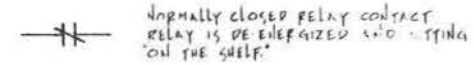 NORMALLY CLOSED RELAY CONTACT
RELAY IS DE-ENERGIZED AND SITTING
"ON THE SHELF."